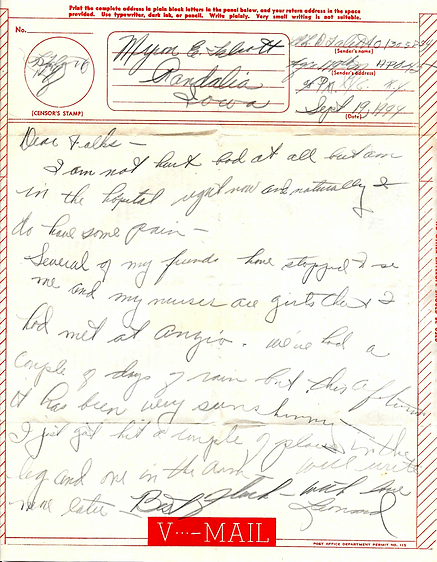 Print the complete address in plain block letters in the panel below, and your return address in the space
provided. Use typewriter, dark ink, or pencil. Write plainly. Very small writing is not suitable.
No.
Myron E.
Randalia
Iowa
(Sender's name)
(Sender's address)
Sept 19, 1944
(Date)
(CENSOR'S STAMP)
Dear Folks –
I am not hurt bad at all but am
in the hospital right now and naturally I
do have some pain –
Several of my friends have stopped to se
me and my nurses are girls that I
had met at Anzio. We've had a
couple of days of rain but this afternoon
it has been very sunshinny –
I just got hit a couple of places in the
leg and one in the arm – will write
more later Best of luck – with love
Leonard
V···–MAIL
POST OFFICE DEPARTMENT PERMIT NO.